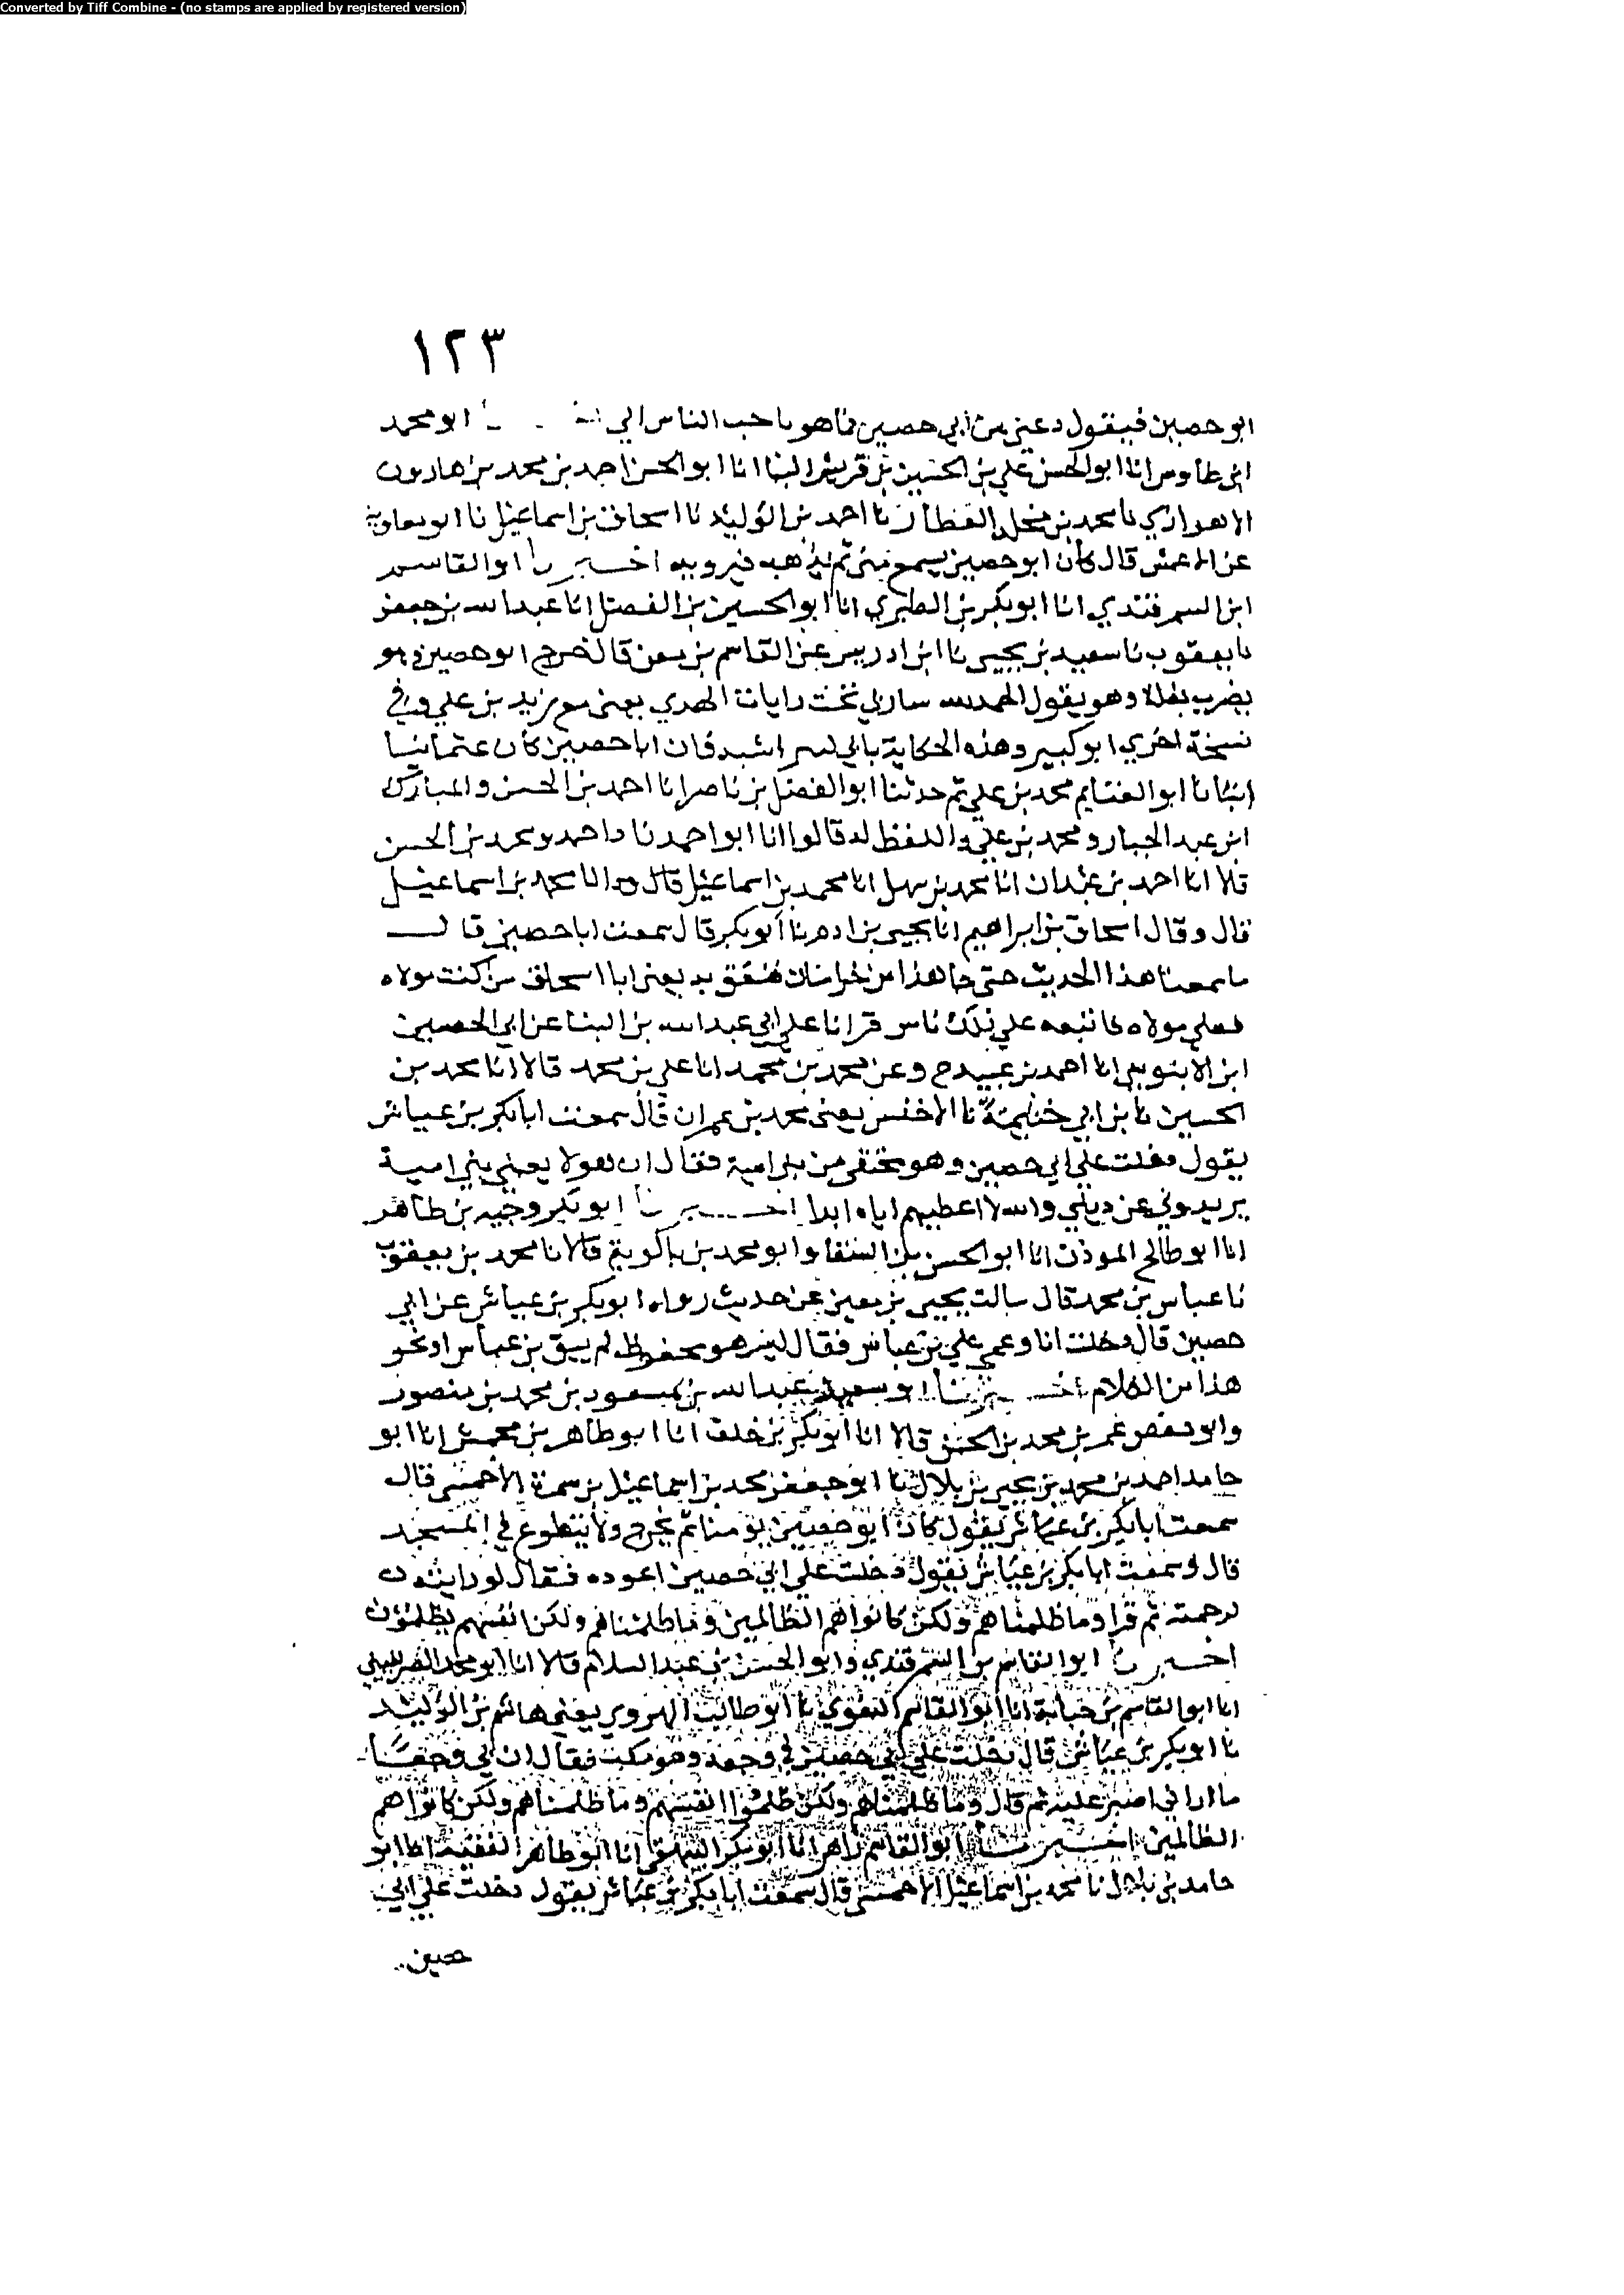 Converted by Tiff Combine - (no stamps are applied by registered version)
١٢٣
ابو حصين فيقول دعني من ابي حصين فما هو باحب الناس الي ابو محمد
ابن طاوس انا ابو الحسن علي بن الحسين بن قريش البنا انا ابو الحسن احمد بن محمد بن هارون
الاهوازي نا محمد بن مخلد العطار نا احمد بن الوليد نا اسحاق بن اسماعيل نا ابو معاوية
عن الاعمش قال كان ابو حصين يسمع مني ثم يذهب فيرويه اخبرنا ابو القاسم
ابن السمرقندي انا ابو بكر بن الطبري انا ابو الحسين بن الفضل انا عبد الله بن جعفر
نا يعقوب نا سعيد بن يحيى نا ابن ادريس عن القاسم بن معن قال خرج ابو حصين وهو
يضرب بغله وهو يقول الحمد لله سار بي تحت رايات الهدي يعني مع زيد بن علي وفي
نسخة اخري ابو كبير وهذه الحكاية بابي كبير اشبه فان ابا حصين كان عثمانيا
انبانا ابو الغنايم محمد بن علي ثم حدثنا ابو الفضل بن ناصر انا احمد بن الحسن والمبارك
ابن عبد الجبار ومحمد بن علي واللفظ له قالوا انا ابو احمد زاد احمد ومحمد بن الحسن
قالا انا احمد بن عبدان انا محمد بن سهل انا محمد بن اسماعيل قال محمد بن اسماعيل
قال وقال اسحاق بن ابراهيم انا يحيى بن ادم نا ابو بكر قال سمعت ابا حصين قال
ما سمعنا هذا الحديث حتى جا هذا من خراسان فنعق به يعني ابا اسحاق من كنت مولاه
فعلي مولاه فاتبعه علي ذلك ناس قرانا علي ابي عبد الله بن البنا عن ابي الحسين
ابن الابنوسي انا احمد بن عبيد ح وعن محمد بن محمد انا علي بن محمد قالا انا محمد بن
الحسين نا بن ابي خيثمة نا الاخنسي يعني محمد بن عمران قال سمعت ابا بكر بن عياش
يقول دخلت علي ابي حصين وهو مختفي من بني امية فقال ان هولا يعني بني امية
يريدوني عن ديني والله لا اعطيهم اياه ابدا اخبرنا ابو بكر وجيه بن طاهر
انا ابو صالح الموذن انا ابو الحسن بن السقا وابو محمد بن بالويه قالا نا محمد بن يعقوب
نا عباس بن محمد قال سالت يحيى بن معين عن حديث رواه ابو بكر بن عياش عن ابي
حصين قال دخلت انا وعمي علي بن عباس فقال ليس هو بمحفوظ لم يبق بن عباس او نحو
هذا من الكلام اخبرنا ابو سعيد عبد الله بن مسعود بن محمد بن منصور
وابو حفص عمر بن محمد بن الحسن قالا انا ابو بكر بن خلف انا ابو طاهر بن محمش انا ابو
حامد احمد بن محمد بن يحيى بن بلال نا ابو جعفر محمد بن اسماعيل بن سمرة الاحمسي قال
سمعت ابا بكر بن عياش يقول كان ابو حصين يؤمنا ثم يخرج ولا يتطوع في المسجد
قال وسمعت ابا بكر بن عياش يقول دخلت علي ابي حصين اعوده فقال لو رايته
لرحمته ثم قرا وما ظلمناهم ولكن كانوا هم الظالمين وما ظلمناهم ولكن انفسهم يظلمون
اخبرنا ابو القاسم بن السمرقندي وابو الحسن بن عبد السلام قالا انا ابو محمد الصريفيني
انا ابو القاسم بن حبابة انا ابو القاسم البغوي نا ابو طالب الهروي يعني هاشم بن الوليد
نا ابو بكر بن عياش قال دخلت علي ابي حصين في وجعه وهو مكب فقال ان بي وجعا
ما اراني اصبر عليه ثم قال وما ظلمناهم ولكن ظلموا انفسهم وما ظلمناهم ولكن كانوا هم
الظالمين اخبرنا ابو القاسم زاهر انا ابو بكر البيهقي انا ابو طاهر الفقيه انا ابو
حامد بن بلال نا محمد بن اسماعيل الاحمسي قال سمعت ابا بكر بن عياش يقول دخلت علي ابي
حصين